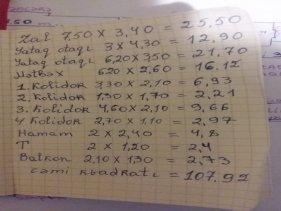 Zal 7.50 x 3,40 = 25,50
Yataq otaqı 3 x 4,30 = 12,90
Yataq otaqı 6,20 x 3,50 = 21,70
Mətbəx 6,20 x 2,60 = 16.12
1. Kolidor 3,30 x 2,10 = 6,93
2. Kolidor 1,30 x 1,70 = 2,21
3. Kolidor 4,60 x 2,10 = 9,66
4 Kolidor 2,70 x 1,10 = 2,97
Hamam 2 x 2,40 = 4,8
T 2 x 1,20 = 2,4
Balkon 2,10 x 1,30 = 2,73
cəmi kvadratı = 107.92